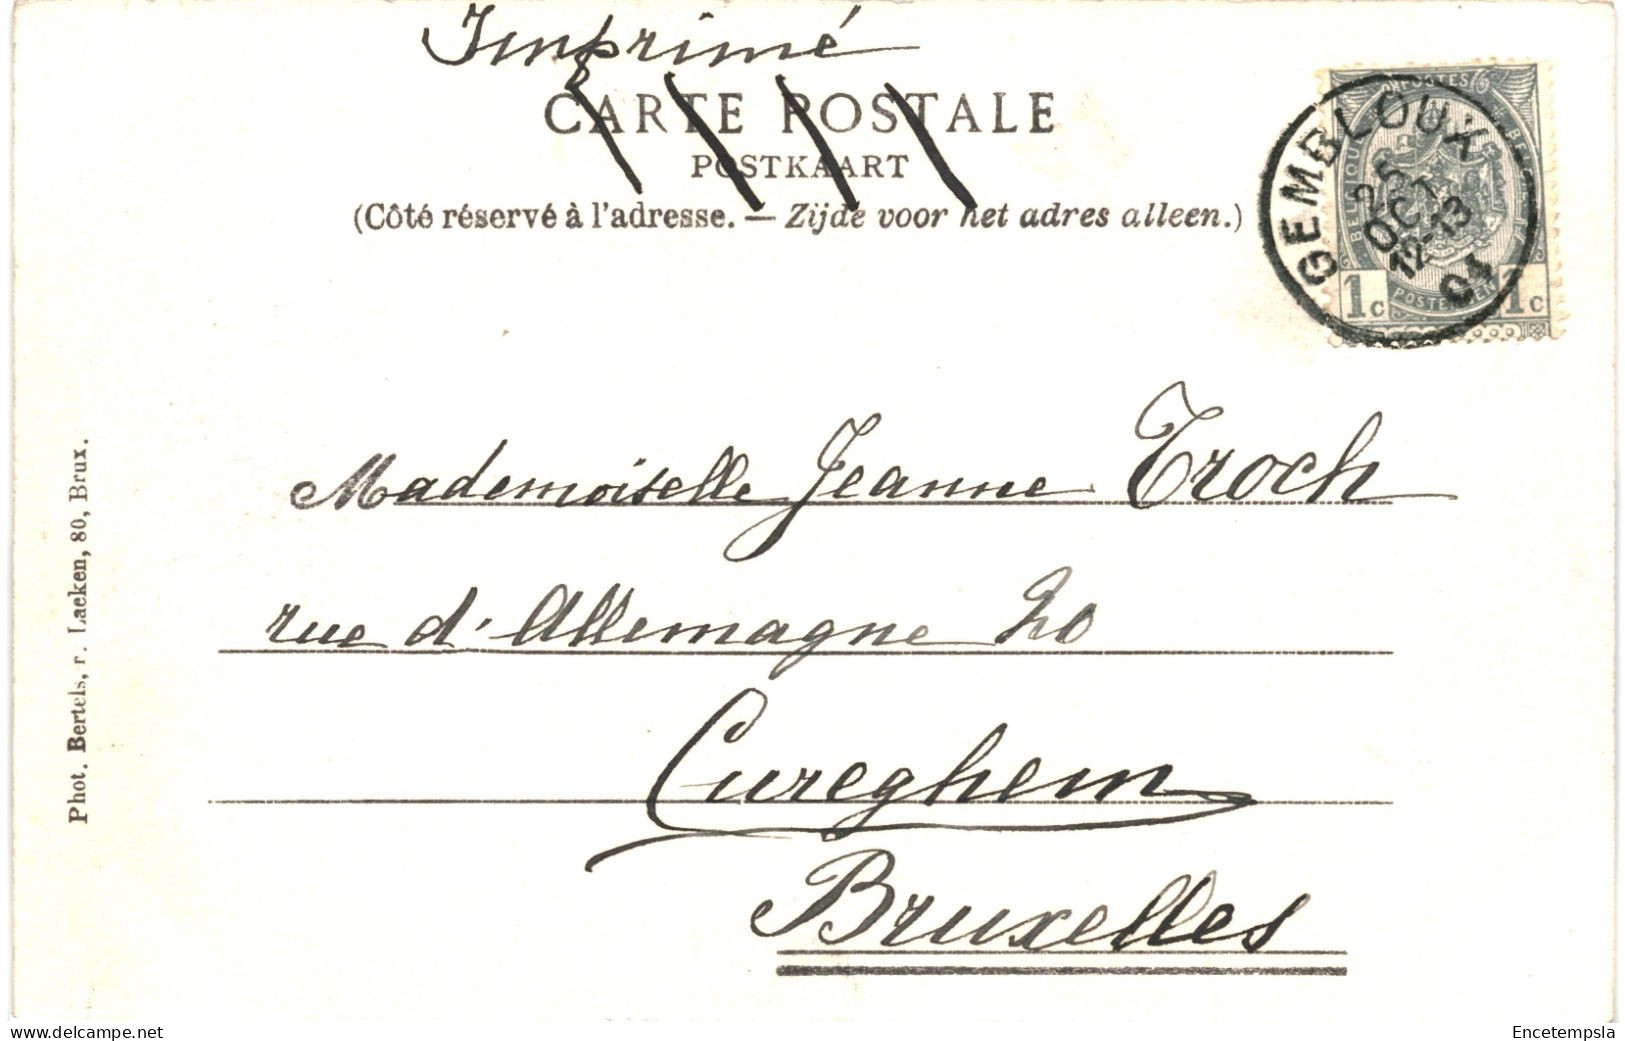 Imprimé
CARTE POSTALE
POSTKAART
(Côté réservé à l'adresse. — Zijde voor het adres alleen.)
POSTES
BELGIQUE
BELGIË
POSTERIJEN
1c 1c
GEMBLOUX
25
OCT
12-13
04
Mademoiselle Jeanne Troch
rue d'Allemagne 20
Cureghem
Bruxelles
Phot. Bertels, r. Laeken, 80, Brux.
www.delcampe.net
Encetempsla